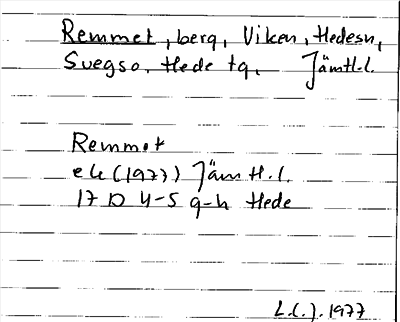 Remmet, berg, Viken, Hedesn,
Svegso, Hede tg, Jämtl.l.
Remmet
ek (1977) Jämtl.l.
17 D 4-5 g-h Hede
L.(.). 1977